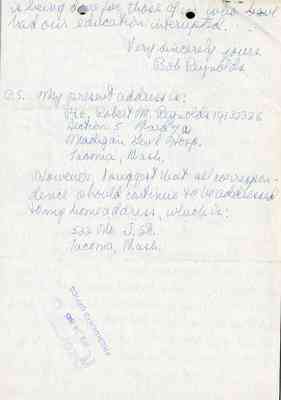 is being done for those of us who have
had our education interrupted.
Very sincerely yours
Bob Reynolds
P.S. My present address is:
Pfc. Robert M. Reynolds 19132326
Section 5 Ward 7a
Madigan Gen'l Hosp.
Tacoma, Wash.
However, I suggest that all correspon-
dence should continue to be addressed
to my home address, which is:
522 No. J. St.
Tacoma, Wash.
PRESIDENT'S OFFICE